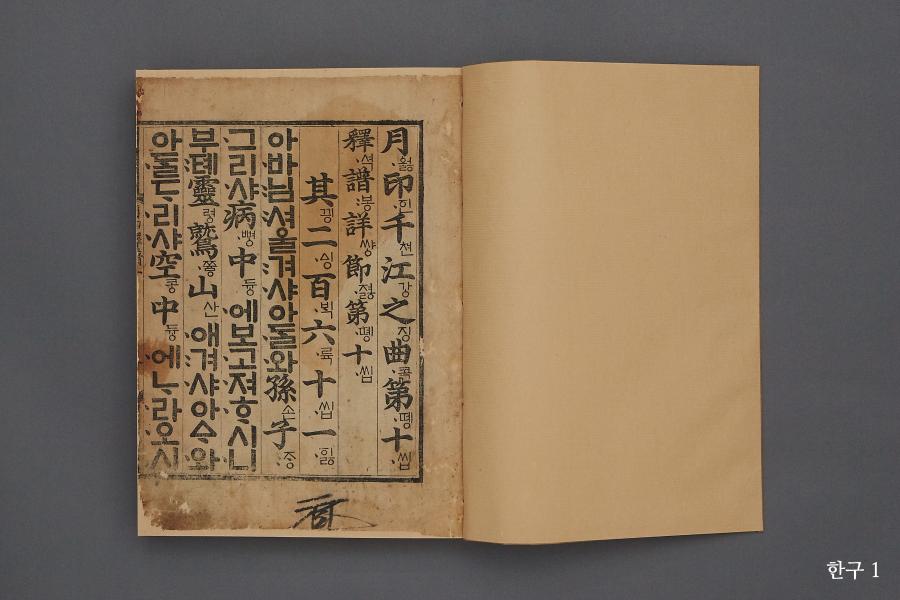 月·ᅌᅯᇙ印·ᅙᅵᆫ千쳔江강之징曲·콕第·똉十·씹
釋·셕譜:봉詳썅節·져ᇙ第·똉十·씹
其끵二·ᅀᅵᆼ百·ᄇᆡᆨ六·륙十·씹一·ᅙᅵᇙ
아·바:님·셔울·겨·샤아·ᄃᆞᆯ·와孫손子:ᄌᆞᆼ
그·리·샤病·뼝中듕·에보·고·져·ᄒᆞ·시니
부:톄靈령鷲·쯓山산·애·겨·샤아·ᅀᆞ·와
아·ᄃᆞᆯᄃᆞ·리·샤空콩中듕·에ᄂᆞ·라·오·시
한구 1